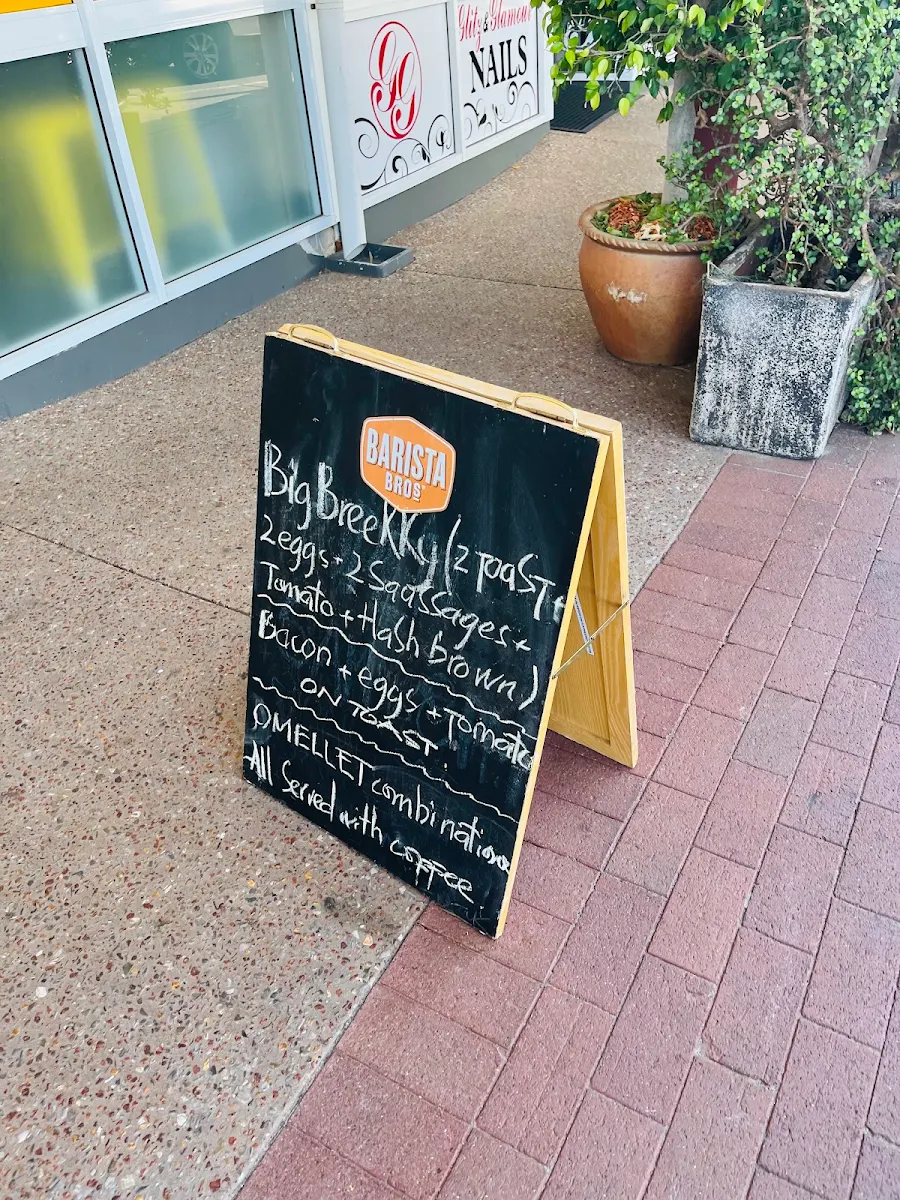 Glitz & Glamour
GG
NAILS
BARISTA
BROS
Big Breekky (2 TOAST+
2 eggs + 2 Saassages +
Tomato + Hash brown)
Bacon + eggs + Tomato
ON TOAST
OMELLET combinations
All Served with COFFEE